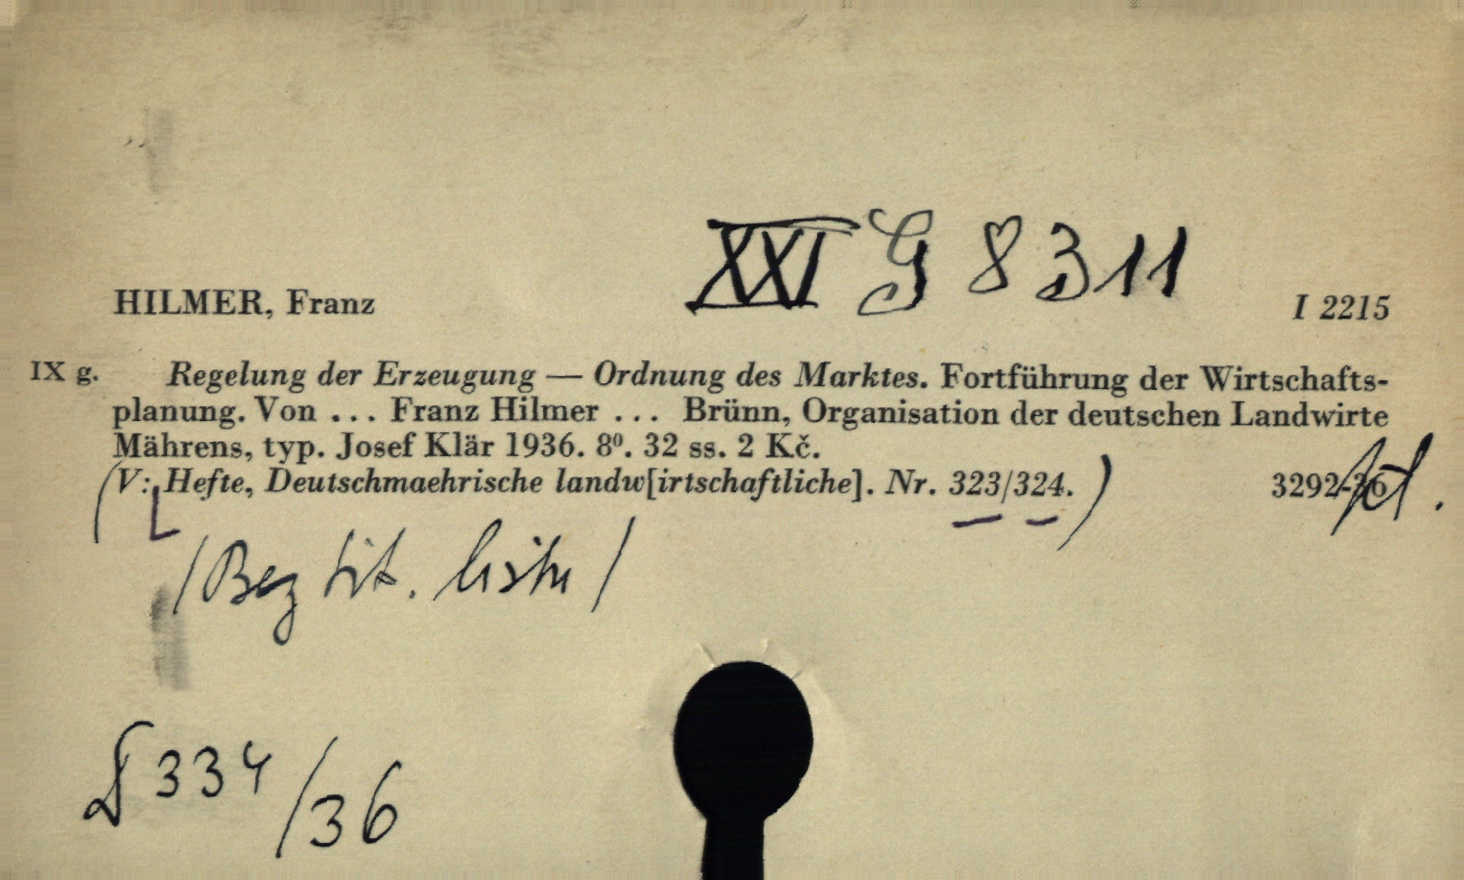 XXI G 8311
HILMER, Franz
I 2215
IX g.
Regelung der Erzeugung — Ordnung des Marktes. Fortführung der Wirtschafts-
planung. Von ... Franz Hilmer ... Brünn, Organisation der deutschen Landwirte
Mährens, typ. Josef Klär 1936. 8⁰. 32 ss. 2 Kč.
(V: Hefte, Deutschmaehrische landw[irtschaftliche]. Nr. 323/324.)
3292-36
/Bez tit. listu/
334/36